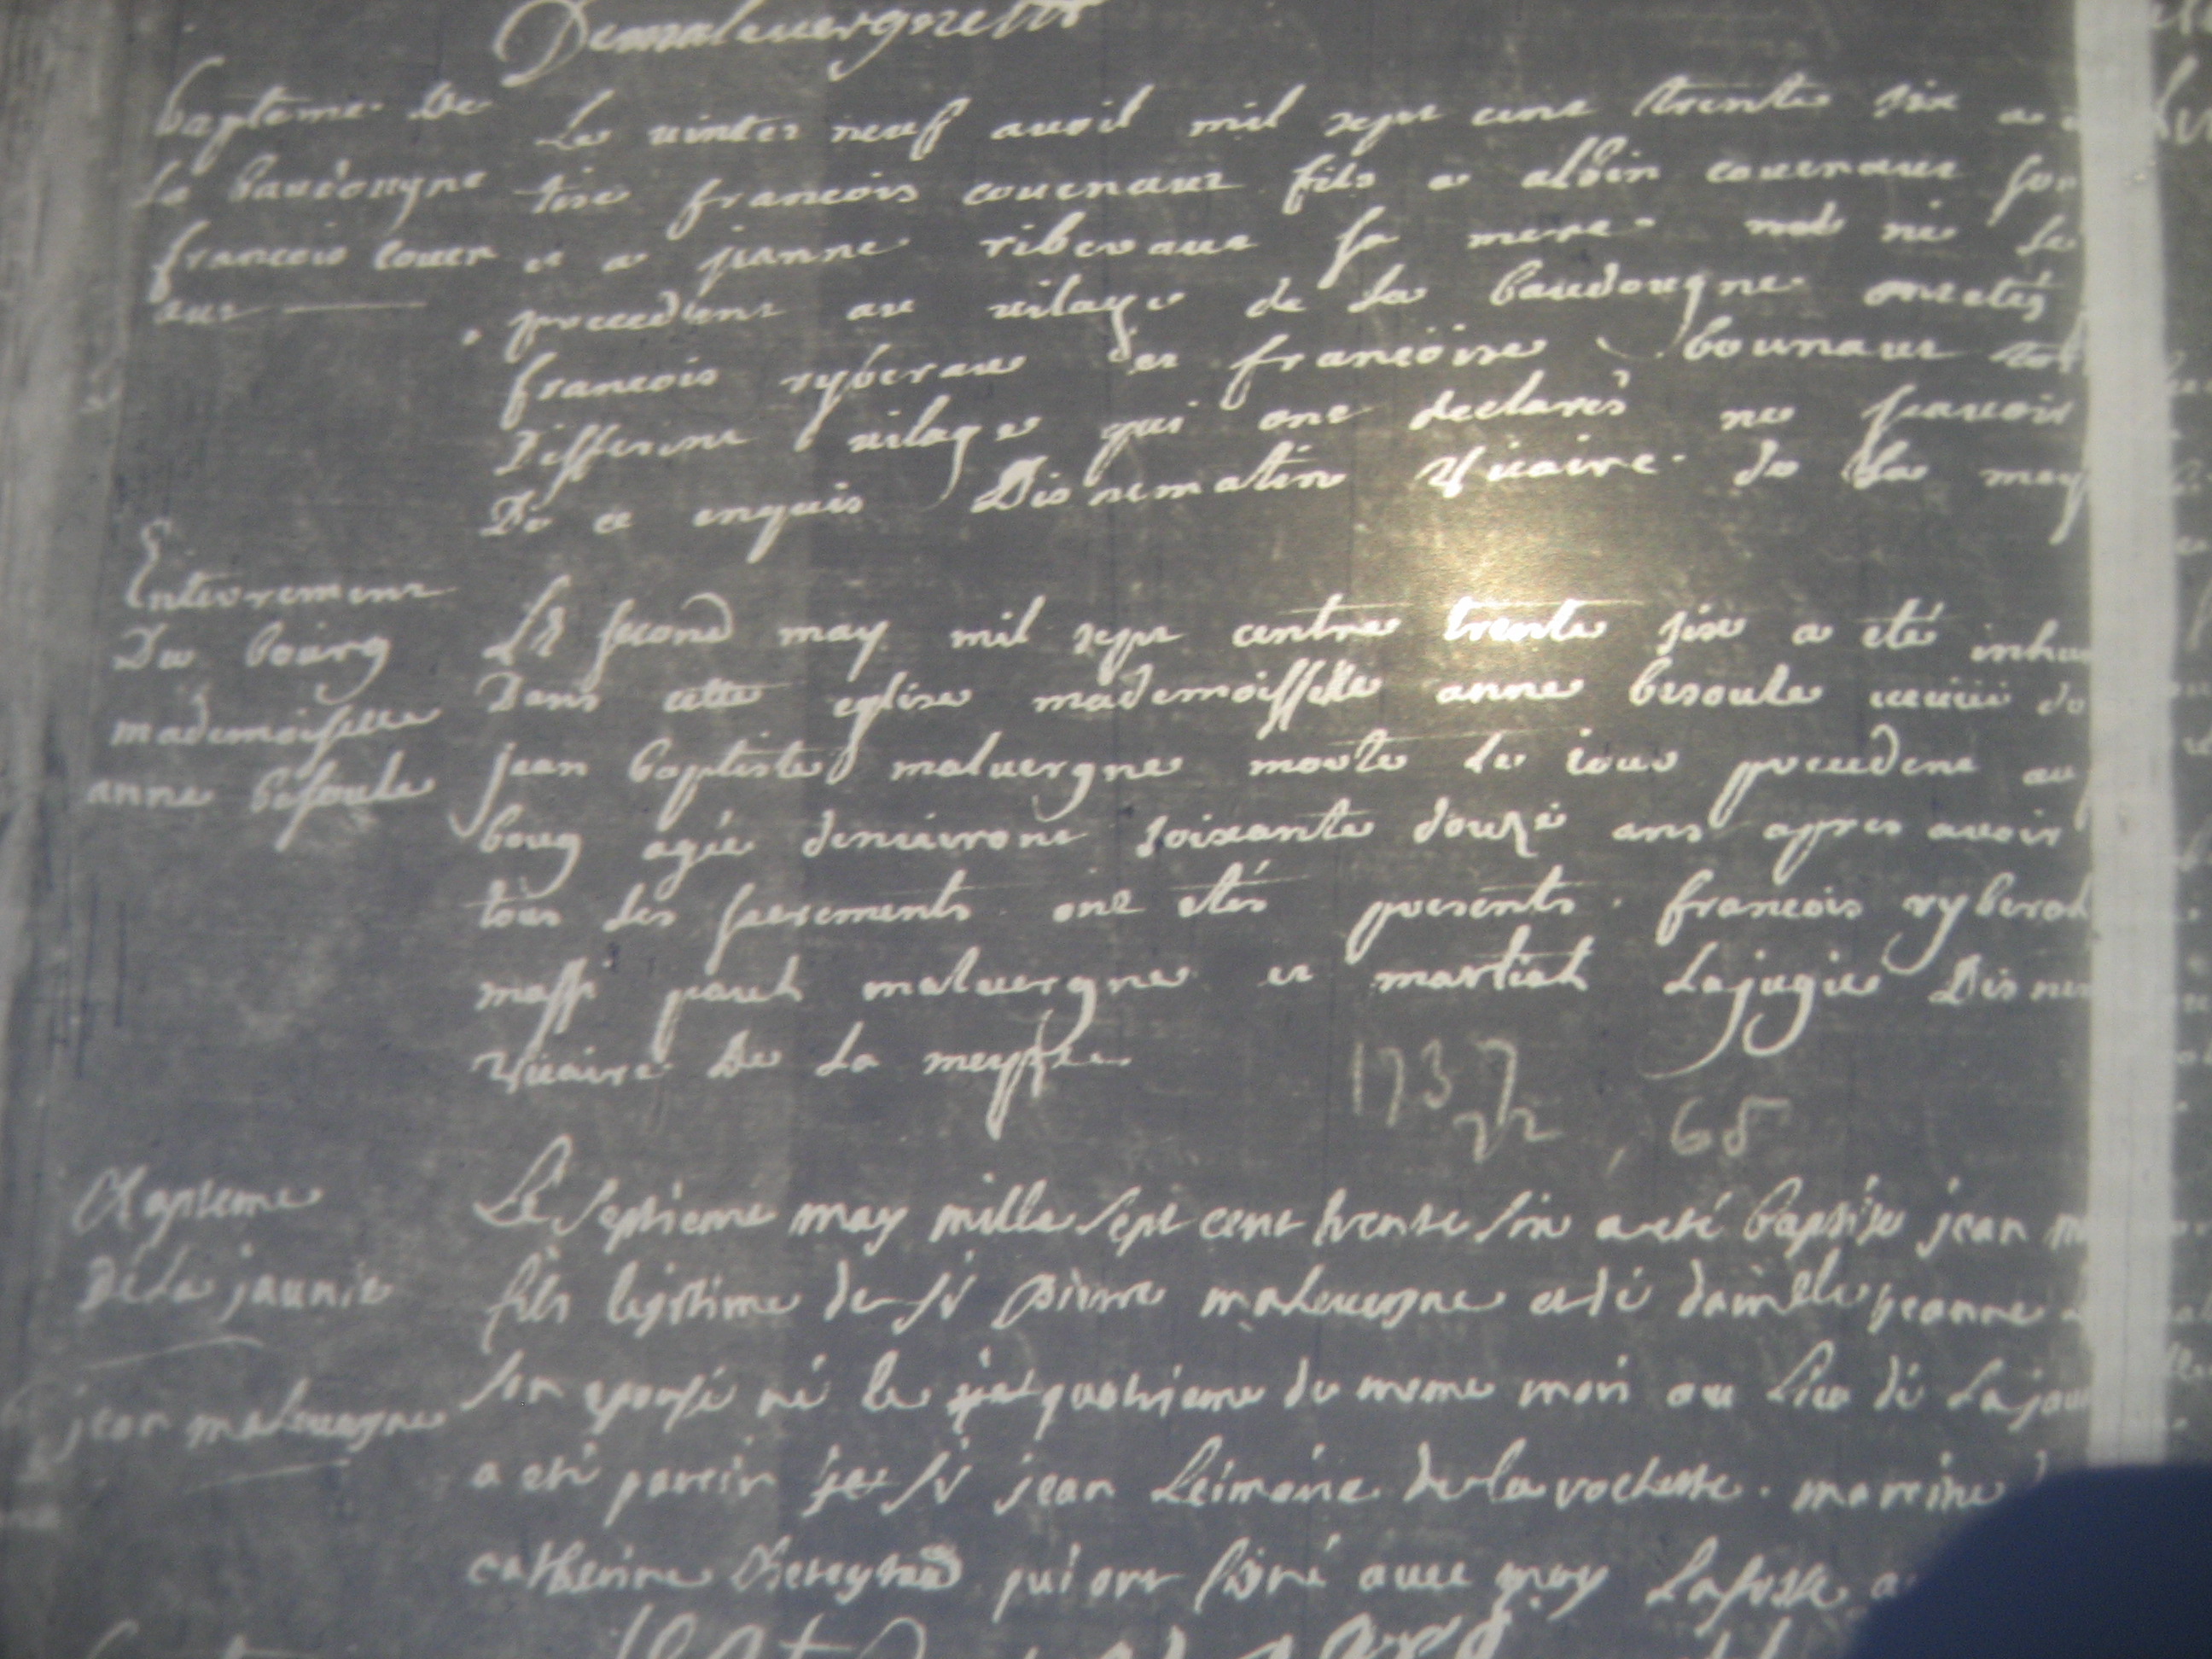 Demaleuergne
bapteme de
la baudougne
francois couen
aux
Le vintes neuf avril mil sept cent trente six a
tise francois couenaux fils a albin couenaux son
et a jeanne riberaux sa mere né le
procedent au vilage de la baudougne ont etés
francois ryberau et francoise bounaux
different vilage qui ont declarés ne scavoir
De ce enquis Disnematin Vicaire de la mey
Enterrement
Du bourg
mademoiselle
anne besoule
Le second may mil sept centre trente six a eté inhu
Dans cette eglise mademoisselle anne besoule veuve de
jean baptiste maluergne procedent au
boug agée denuiront soixante douze ans apres avoir
tous les sacrements ont etés presents francois ryberol
mass paul maluergne et martial Lajugie Disnem
Vicaire De La meyze
1737
72, 65
Bapteme
De la jaunie
jean maleuergne
Le Septieme may mille sept cent trente six a eté baptise jean m
fils legitime de sr pierre maleuergne et de damlle jeanne
son epouse né le quatrieme du meme mois au lieu de la jau
a eté parein sr jean Leimarie de la rochette . mareine
catherine qui ont siné avec moy Lafosse